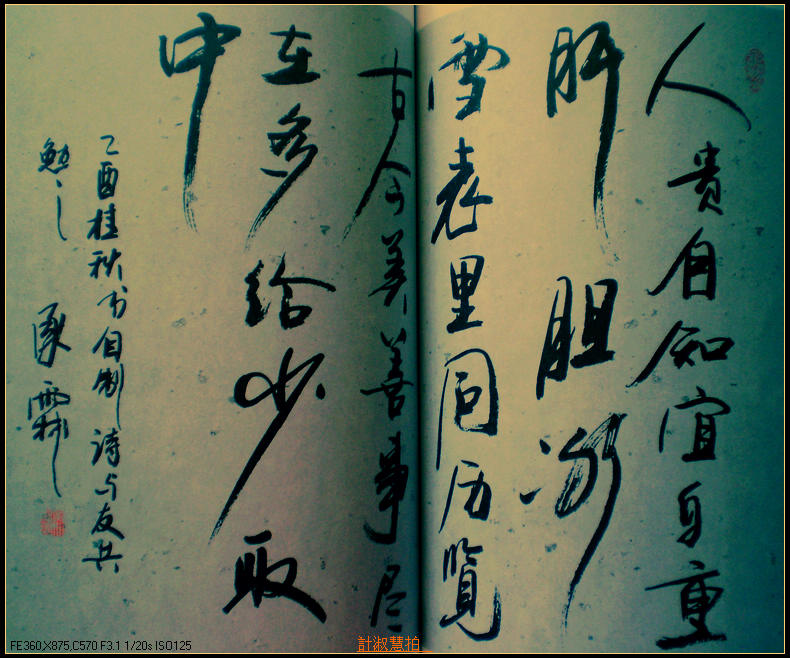 人贵自知宜自重
肝胆冰
雪表里同历览
古今美善事尽
在多给少取
中
乙酉桂秋书自制诗与友共
勉之 霖
FE360,X875,C570 F3.1 1/20s ISO125
計淑慧拍